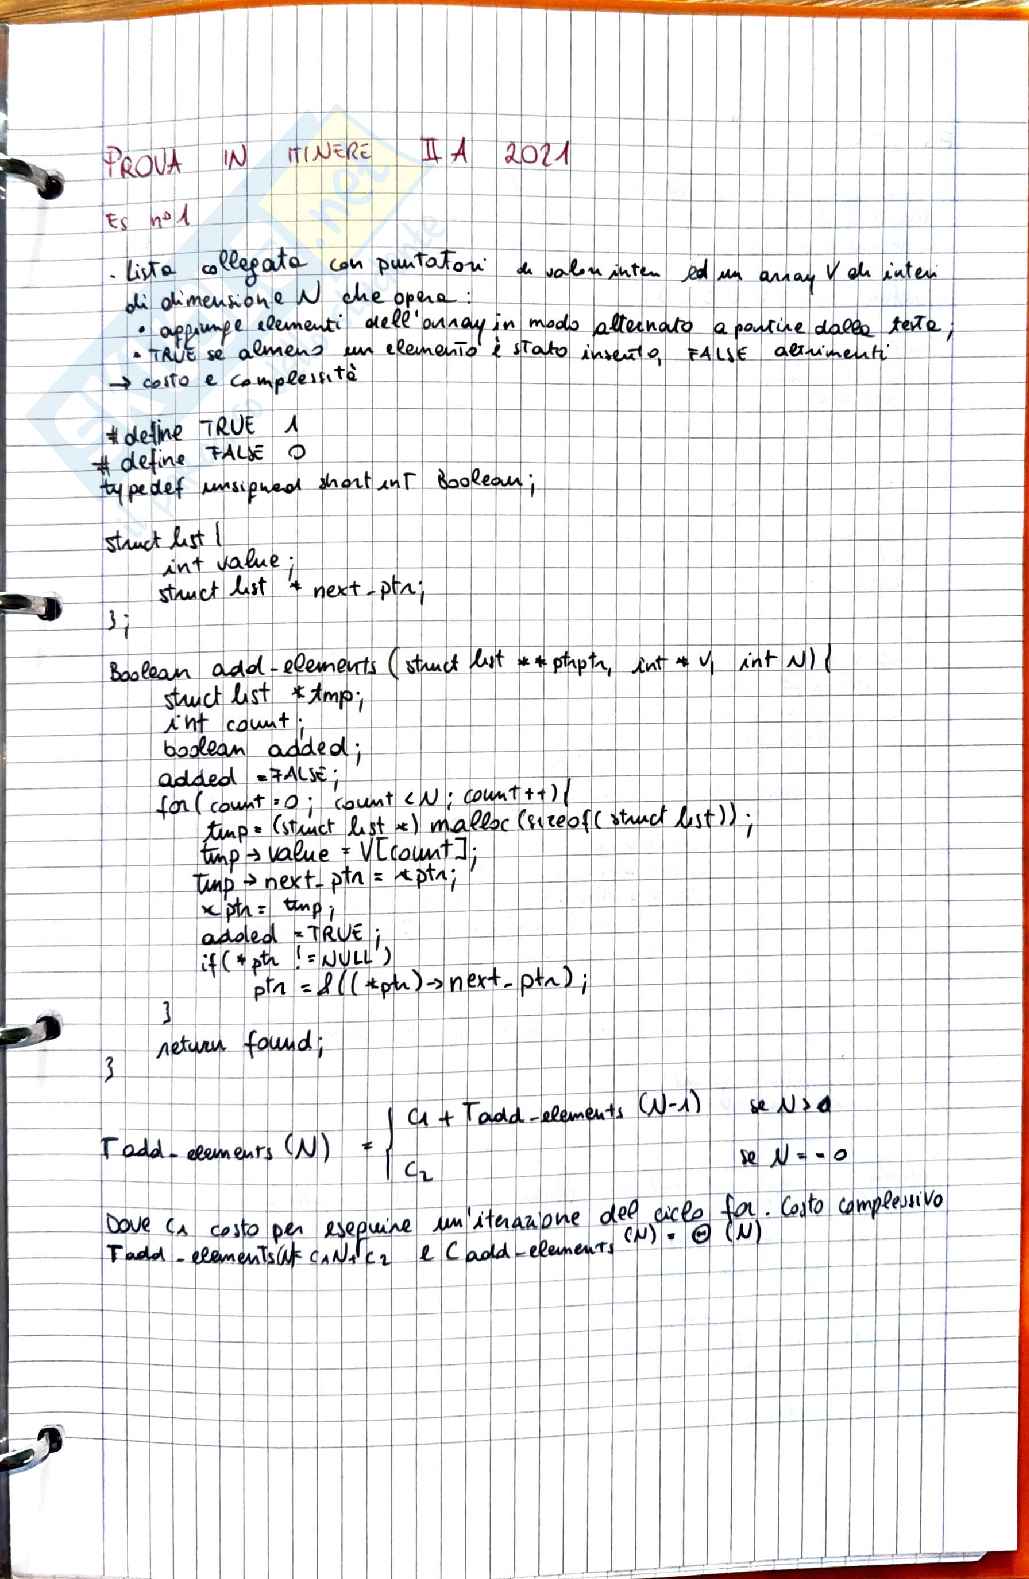 PROVA IN ITINERE II A 2021
Es n°1
· Lista collegata con puntatori di valori interi ed un array V di interi
di dimensione N che opera:
• aggiunge elementi dell'array in modo alternato a partire dalla testa;
• TRUE se almeno un elemento è stato inserito, FALSE altrimenti
→ costo e complessità
# define TRUE 1
# define FALSE 0
typedef unsigned short int Boolean;
struct list {
int value;
struct list * next_ptr;
};
Boolean add-elements (struct list ** ptrptr, int * V, int N) {
struct list *tmp;
int count;
boolean added;
added = FALSE;
for( count = 0; count < N; count ++) {
tmp = (struct list *) malloc (sizeof( struct list));
tmp → value = V[count];
tmp → next_ptr = *ptr;
*ptr = tmp;
added = TRUE;
if( *ptr != NULL )
ptr = &((*ptr)→next_ptr);
}
return found;
}
Tadd-elements (N) = { C1 + Tadd-elements (N-1) se N>0
C2 se N == 0
Dove C1 costo per eseguire un'iterazione del ciclo for. Costo complessivo
Tadd-elements(N)= C1N+C2 e Cadd-elements (N) = Θ (N)